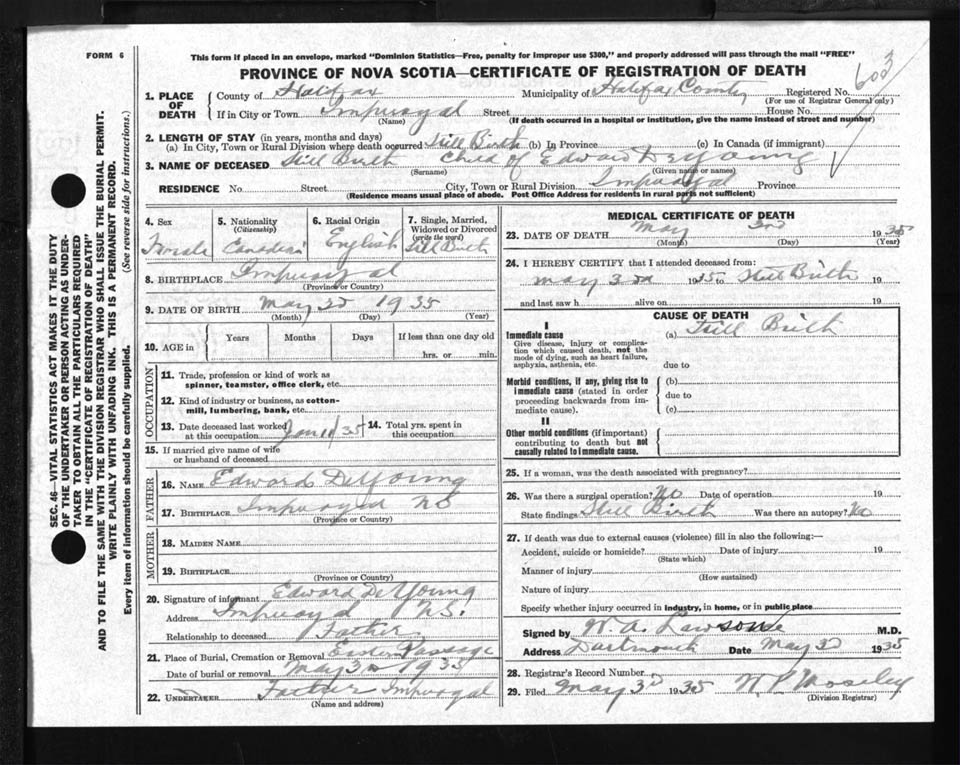 FORM 6
This form if placed in an envelope, marked "Dominion Statistics—Free, penalty for improper use $300," and properly addressed will pass through the mail "FREE"
PROVINCE OF NOVA SCOTIA—CERTIFICATE OF REGISTRATION OF DEATH
603
1. PLACE OF DEATH
County of Halifax Municipality of Halifax County Registered No.
(For use of Registrar General only)
If in City or Town Imperoyal Street House No.
(Name) (If death occurred in a hospital or institution, give the name instead of street and number)
2. LENGTH OF STAY (in years, months and days)
(a) In City, Town or Rural Division where death occurred Still Birth (b) In Province (c) In Canada (if immigrant)
3. NAME OF DECEASED Still Birth Child of Edward DeYoung
(Surname) (Given name or names)
RESIDENCE No. Street City, Town or Rural Division Imperoyal Province
(Residence means usual place of abode. Post Office Address for residents in rural parts not sufficient)
4. Sex
5. Nationality (Citizenship) Canadian
6. Racial Origin English
7. Single, Married, Widowed or Divorced (write the word) Still Birth
8. BIRTHPLACE Imperoyal
(Province or Country)
9. DATE OF BIRTH May 3D 1935
(Month) (Day) (Year)
10. AGE in Years Months Days If less than one day old
hrs. or min.
OCCUPATION
11. Trade, profession or kind of work as spinner, teamster, office clerk, etc.
12. Kind of industry or business, as cotton-mill, lumbering, bank, etc.
13. Date deceased last worked at this occupation
14. Total yrs. spent in this occupation
15. If married give name of wife or husband of deceased
FATHER
16. NAME Edward DeYoung
17. BIRTHPLACE Imperoyal NS
(Province or Country)
MOTHER
18. MAIDEN NAME
19. BIRTHPLACE
(Province or Country)
20. Signature of informant Edward DeYoung
Address Imperoyal N.S.
Relationship to deceased Father
21. Place of Burial, Cremation or Removal Eastern Passage
Date of burial or removal May 3D 1935
22. UNDERTAKER Father Imperoyal
(Name and address)
MEDICAL CERTIFICATE OF DEATH
23. DATE OF DEATH May 3rd 1935
(Month) (Day) (Year)
24. I HEREBY CERTIFY that I attended deceased from:
May 3rd 1935 to Still Birth 19
and last saw h alive on 19
CAUSE OF DEATH
I
Immediate cause (a) Still Birth
Give disease, injury or complication which caused death, not the mode of dying, such as heart failure, asphyxia, asthenia, etc.
due to
Morbid conditions, if any, giving rise to immediate cause (stated in order proceeding backwards from immediate cause).
(b)
due to
(c)
II
Other morbid conditions (if important) contributing to death but not causally related to immediate cause.
25. If a woman, was the death associated with pregnancy?
26. Was there a surgical operation? No Date of operation 19
State findings Still Birth Was there an autopsy? No
27. If death was due to external causes (violence) fill in also the following:—
Accident, suicide or homicide? Date of injury 19
(State which)
Manner of injury
(How sustained)
Nature of injury
Specify whether injury occurred in industry, in home, or in public place
Signed by W. A. Lawson M.D.
Address Dartmouth Date May 3D 1935
28. Registrar's Record Number
29. Filed May 3D 1935 Moseley
(Division Registrar)
SEC. 46—VITAL STATISTICS ACT MAKES IT THE DUTY
OF THE UNDERTAKER OR PERSON ACTING AS UNDER-
TAKER TO OBTAIN ALL THE PARTICULARS REQUIRED
IN THE "CERTIFICATE OF REGISTRATION OF DEATH"
AND TO FILE THE SAME WITH THE DIVISION REGISTRAR WHO SHALL ISSUE THE BURIAL PERMIT.
WRITE PLAINLY WITH UNFADING INK. THIS IS A PERMANENT RECORD.
Every item of information should be carefully supplied. (See reverse side for instructions.)